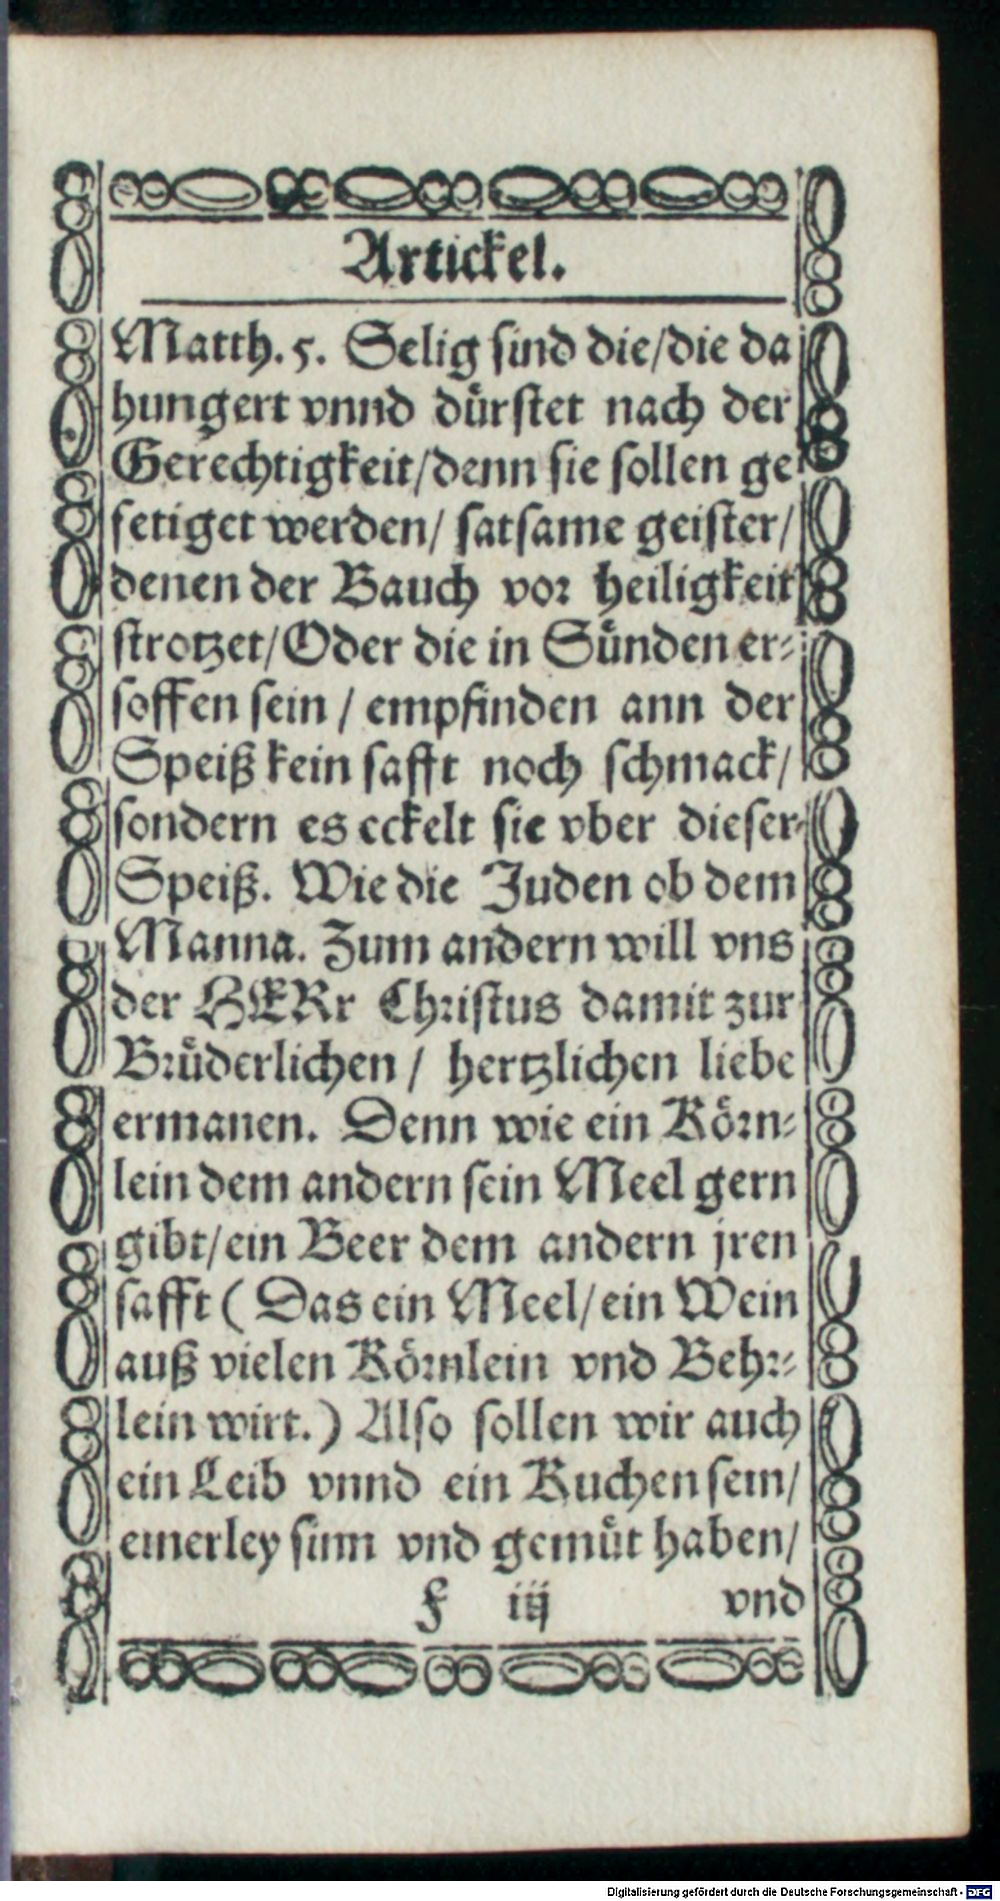 Artickel.
Matth. 5. Selig sind die/die da
hungert vnnd dürstet nach der
Gerechtigkeit/denn sie sollen ge
setiget werden/ satsame geister/
denen der Bauch vor heiligkeit
strotzet/Oder die in Sünden er-
soffen sein / empfinden ann der
Speiß kein safft noch schmack/
sondern es eckelt sie vber dieser
Speiß. Wie die Juden ob dem
Manna. Zum andern will vns
der HERr Christus damit zur
Brüderlichen / hertzlichen liebe
ermanen. Denn wie ein Körn-
lein dem andern sein Meel gern
gibt/ein Beer dem andern jren
safft ( Das ein Meel/ein Wein
auß vielen Körnlein vnd Behr-
lein wirt.) Also sollen wir auch
ein Leib vnnd ein Kuchen sein/
einerley sinn vnd gemüt haben/
f iij vnd
Digitalisierung gefördert durch die Deutsche Forschungsgemeinschaft - DFG